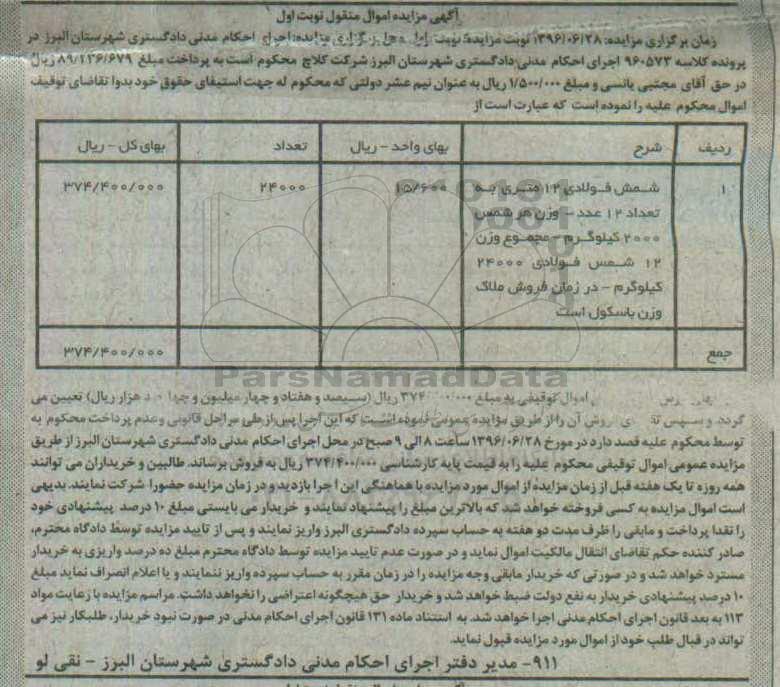 آگهی مزایده اموال منقول نوبت اول
زمان برگزاری مزایده: ۱۳۹۶/۰۶/۲۸ نوبت مزایده: نوبت اول محل برگزاری مزایده: اجرای احکام مدنی دادگستری شهرستان البرز در
پرونده کلاسه ۹۶۰۵۷۳ اجرای احکام مدنی دادگستری شهرستان البرز شرکت کلاچ محکوم است به پرداخت مبلغ ۸۹/۱۳۶/۶۷۹ ریال
در حق آقای مجتبی یانسی و مبلغ ۱/۵۰۰/۰۰۰ ریال به عنوان نیم عشر دولتی که محکوم له جهت استیفای حقوق خود بدوا تقاضای توقیف
اموال محکوم علیه را نموده است که عبارت است از
ردیف شرح بهای واحد - ریال تعداد بهای کل - ریال
۱ شمش فولادی ۱۲ متری به ۱۵/۶۰۰ ۲۴۰۰۰ ۳۷۴/۴۰۰/۰۰۰
تعداد ۱۲ عدد - وزن هر شمس
۲۰۰۰ کیلوگرم - مجموع وزن
۱۲ شمس فولادی ۲۴۰۰۰
کیلوگرم - در زمان فروش ملاک
وزن باسکول است
جمع ۳۷۴/۴۰۰/۰۰۰
ParsNamadData
اموال توقیفی به مبلغ ۳۷۴ ریال (سیصد و هفتاد و چهار میلیون و هزار ریال) تعیین می
گردد و سپس آن را از طریق مزایده عمومی نموده است که این اجرا پس از طی مراحل قانونی و عدم پرداخت محکوم به
توسط محکوم علیه قصد دارد در مورخ ۱۳۹۶/۰۶/۲۸ ساعت ۸ الی ۹ صبح در محل اجرای احکام مدنی دادگستری شهرستان البرز از طریق
مزایده عمومی اموال توقیفی محکوم علیه را به قیمت پایه کارشناسی ۳۷۴/۴۰۰/۰۰۰ ریال به فروش برساند. طالبین و خریداران می توانند
همه روزه تا یک هفته قبل از زمان مزایده از اموال مورد مزایده با هماهنگی این اجرا بازدید و در زمان مزایده حضورا شرکت نمایند. بدیهی
است اموال مزایده به کسی فروخته خواهد شد که بالاترین مبلغ را پیشنهاد نمایند و خریدار می بایستی مبلغ ۱۰ درصد پیشنهادی خود
را نقدا پرداخت و مابقی را ظرف مدت دو هفته به حساب سپرده دادگستری البرز واریز نمایند و پس از تایید مزایده توسط دادگاه محترم،
صادر کننده حکم تقاضای انتقال مالکیت اموال نماید و در صورت عدم تایید مزایده توسط دادگاه محترم مبلغ ده درصد واریزی به خریدار
مسترد خواهد شد و در صورتی که خریدار مابقی وجه مزایده را در زمان مقرر به حساب سپرده واریز ننمایند و یا اعلام انصراف نماید مبلغ
۱۰ درصد پیشنهادی خریدار به نفع دولت ضبط خواهد شد و خریدار حق هیچگونه اعتراضی را نخواهد داشت. مراسم مزایده با رعایت مواد
۱۱۳ به بعد قانون اجرای احکام مدنی اجرا خواهد شد. به استناد ماده ۱۳۱ قانون اجرای احکام مدنی در صورت نبود خریدار، طلبکار نیز می
تواند در قبال طلب خود از اموال مورد مزایده قبول نماید.
۹۱۱- مدیر دفتر اجرای احکام مدنی دادگستری شهرستان البرز - نقی لو